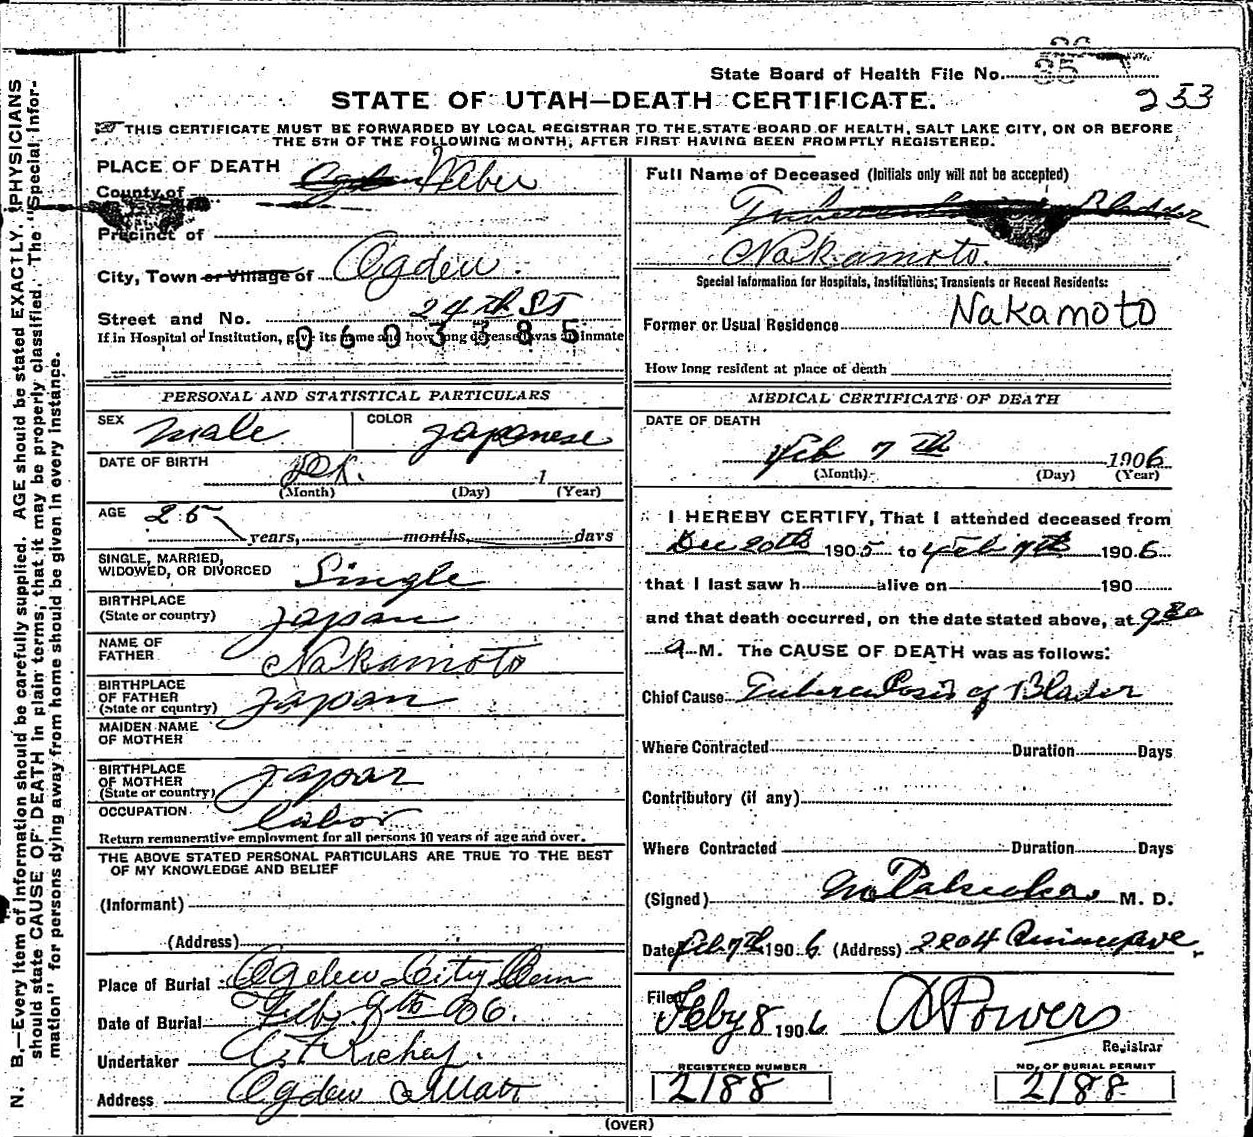 State Board of Health File No. 35
253
STATE OF UTAH—DEATH CERTIFICATE.
THIS CERTIFICATE MUST BE FORWARDED BY LOCAL REGISTRAR TO THE STATE BOARD OF HEALTH, SALT LAKE CITY, ON OR BEFORE
THE 5TH OF THE FOLLOWING MONTH, AFTER FIRST HAVING BEEN PROMPTLY REGISTERED.
N. B.—Every item of information should be carefully supplied. AGE should be stated EXACTLY. PHYSICIANS
should state CAUSE OF DEATH in plain terms, that it may be properly classified. The "Special Infor-
mation" for persons dying away from home should be given in every instance.
PLACE OF DEATH
County of Ogden Weber
Precinct of
City, Town or Village of Ogden
Street and No. 24th St
If in Hospital or Institution, give its name and how long deceased was an inmate
0603385
PERSONAL AND STATISTICAL PARTICULARS
SEX Male COLOR Japanese
DATE OF BIRTH D.K. 1
(Month) (Day) (Year)
AGE 25 years, months, days
SINGLE, MARRIED,
WIDOWED, OR DIVORCED Single
BIRTHPLACE
(State or country) Japan
NAME OF
FATHER Nakamoto
BIRTHPLACE
OF FATHER
(State or country) Japan
MAIDEN NAME
OF MOTHER
BIRTHPLACE
OF MOTHER
(State or country) Japan
OCCUPATION Labor
Return remunerative employment for all persons 10 years of age and over.
THE ABOVE STATED PERSONAL PARTICULARS ARE TRUE TO THE BEST
OF MY KNOWLEDGE AND BELIEF
(Informant)
(Address)
Place of Burial Ogden City Cem
Date of Burial Feb 9th 06.
Undertaker
Address Ogden Utah
Full Name of Deceased (Initials only will not be accepted)
Tuberculosis of Bladder
Nakamoto.
Special Information for Hospitals, Institutions, Transients or Recent Residents:
Nakamoto
Former or Usual Residence
How long resident at place of death
MEDICAL CERTIFICATE OF DEATH
DATE OF DEATH
Feb 7th 1906
(Month) (Day) (Year)
I HEREBY CERTIFY, That I attended deceased from
Dec 20th 1905 to Feb 7th 1906
that I last saw h alive on 190
and that death occurred, on the date stated above, at 9 30
a M. The CAUSE OF DEATH was as follows:
Chief Cause Tuberculosis of Blader
Where Contracted Duration Days
Contributory (if any)
Where Contracted Duration Days
(Signed) M. D.
Date Feb 7th 1906 (Address) 2204 Ave
Filed Feby 8 1906 Powers
Registrar
REGISTERED NUMBER
2188
NO. OF BURIAL PERMIT
2188
(OVER)